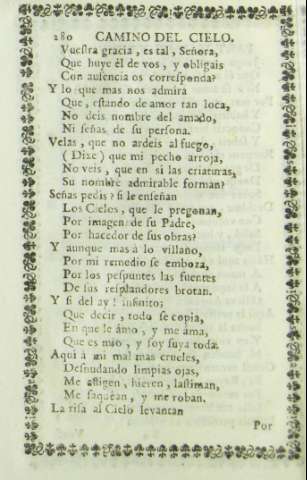 280 CAMINO DEL CIELO.
Vuestra gracia, es tal, Señora,
Que huye él de vos, y obligais
Con ausencia os corresponda?
Y lo que mas nos admira
Que, estando de amor tan loca,
No deis nombre del amado,
Ni señas de su persona.
Velas, que no ardeis al fuego,
( Dixe ) que mi pecho arroja,
No veis, que en si las criaturas,
Su nombre admirable forman?
Señas pedis? si le enseñan
Los Cielos, que le pregonan,
Por imagen de su Padre,
Por hacedor de sus obras?
Y aunque mas à lo villano,
Por mi remedio se emboza,
Por los pespuntes las fuentes
De sus resplandores brotan.
Y si del ay! infinito;
Que decir, todo se copia,
En que le ámo, y me ama,
Que es mio, y soy suya toda.
Aqui à mi mal mas crueles,
Desnudando limpias ojas,
Me afligen, hieren, lastiman,
Me saquean, y me roban.
La risa al Cielo levantan
Por